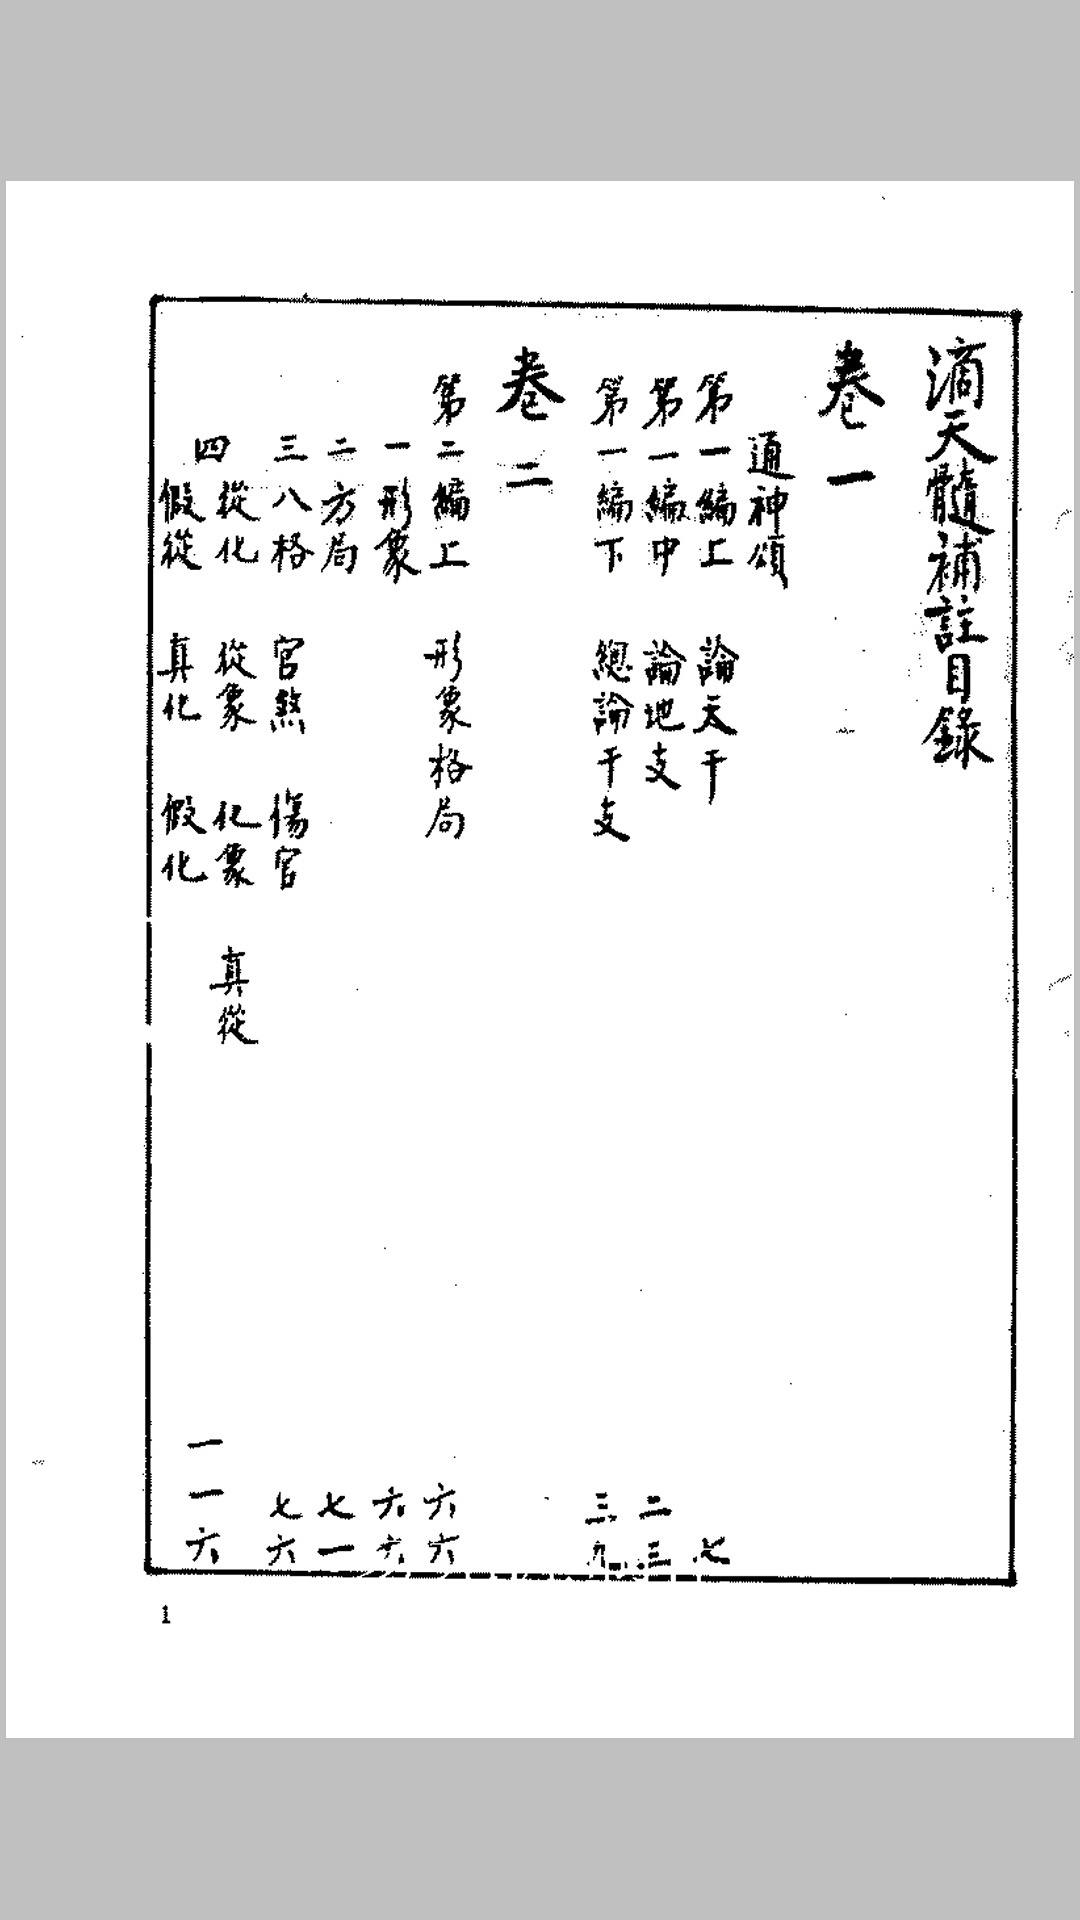 滴天髓補註目錄
卷一
通神頌
第一編上　論天干　七
第一編中　論地支　二三
第一編下　總論干支　三九
卷二
第二編上　形象格局　六六
一形象　六六
二方局　七一
三八格　官煞　傷官　七六
四　從化　從象　化象　真從
假從　真化　假化　一一六
1